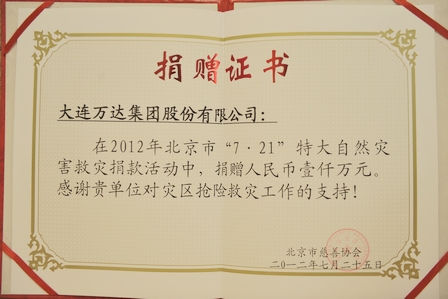 捐赠证书
大连万达集团股份有限公司：
在2012年北京市“7·21”特大自然灾
害救灾捐款活动中，捐赠人民币壹仟万元。
感谢贵单位对灾区抢险救灾工作的支持！
北京市慈善协会
二〇一二年七月二十五日